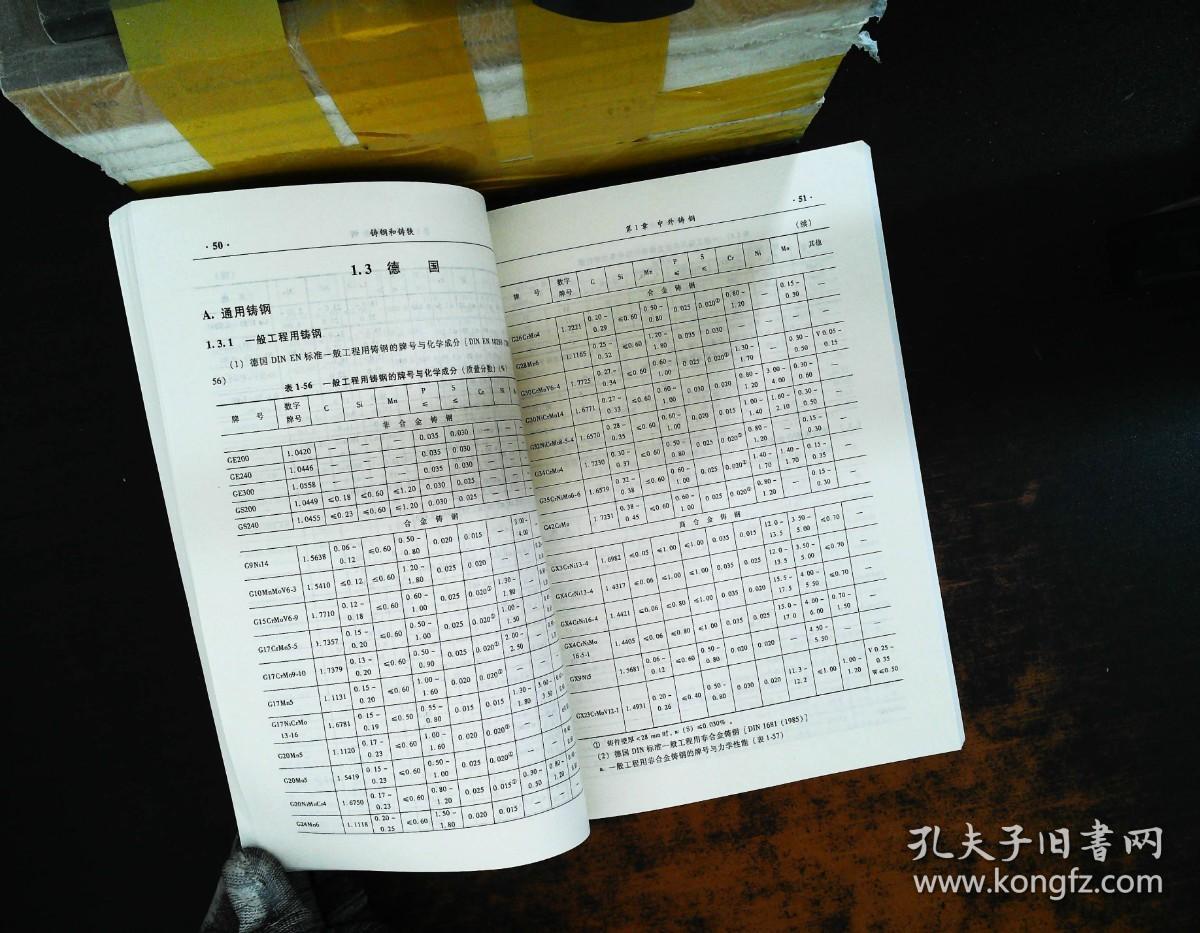 · 50 ·
铸钢和铸铁
1.3 德 国
A. 通用铸钢
1.3.1 一般工程用铸钢
(1) 德国 DIN EN 标准一般工程用铸钢的牌号与化学成分 [DIN EN
56)
表 1-56 一般工程用铸钢的牌号与化学成分 (质量分数) (%)
牌 号 数字牌号 C Si Mn P ≤ S ≤ Cr Ni
非 合 金 铸 钢
GE200 1.0420 — — — 0.035 0.030 — —
GE240 1.0446 — — — 0.035 0.030 — —
GE300 1.0558 — — — 0.035 0.030 — —
GS200 1.0449 ≤0.18 ≤0.60 ≤1.20 0.030 0.025 — —
GS240 1.0455 ≤0.23 ≤0.60 ≤1.20 0.030 0.025 — —
合 金 铸 钢
G9Ni14 1.5638 0.06~0.12 ≤0.60 0.50~0.80 0.020 0.015 — 3.00~4.00
G10MnMoV6-3 1.5410 ≤0.12 ≤0.60 1.20~1.80 0.025 0.020 —
G15CrMoV6-9 1.7710 0.12~0.18 ≤0.60 0.60~1.00 0.025 0.020② 1.30~1.80
G17CrMo5-5 1.7357 0.15~0.20 ≤0.60 0.50~1.00 0.025 0.020① 1.00~1.50
G17CrMo9-10 1.7379 0.13~0.20 ≤0.60 0.50~0.90 0.025 0.020① 2.00~2.50
G17Mn5 1.1131 0.15~0.20 ≤0.60 1.00~1.60 0.020 0.020①
G17NiCrMo13-16 1.6781 0.15~0.19 ≤0.50 0.55~0.80 0.015 0.015 1.30~1.80 3.00~3.50
G20Mn5 1.1120 0.17~0.23 ≤0.60 1.00~1.60 0.020 0.020①
G20Mo5 1.5419 0.15~0.23 ≤0.60 0.50~1.00 0.025 0.020①
G20NiMoCr4 1.6750 0.17~0.23 ≤0.60 0.80~1.20 0.025 0.015① 0.30~0.50 0.80~1.20
G24Mn6 1.1118 0.20~0.25 ≤0.60 1.50~1.80 0.020 0.015 — —
第 1 章 中 外 铸 钢
· 51 ·
(续)
牌 号 数字牌号 C Si Mn P ≤ S ≤ Cr Ni Mo 其他
合 金 铸 钢
G26CrMo4 1.7221 0.20~0.29 ≤0.60 0.50~0.80 0.025 0.020① 0.80~1.20 — 0.15~0.30 —
G28Mn6 1.1165 0.25~0.32 ≤0.60 1.20~1.80 0.035 0.030 — — — —
G30CrMoV6-4 1.7725 0.27~0.34 ≤0.60 0.60~1.00 0.025 0.020① 1.30~1.70 — 0.30~0.50 V 0.05~0.15
G30NiCrMo14 1.6771 0.27~0.33 ≤0.60 0.60~1.00 0.030 0.020 0.80~1.20 3.00~4.00 0.30~0.60 —
G32NiCrMo8-5-4 1.6570 0.28~0.35 ≤0.60 0.60~1.00 0.020 0.015 1.00~1.40 1.60~2.10 0.30~0.50 —
G34CrMo4 1.7230 0.30~0.37 ≤0.60 0.50~0.80 0.025 0.020① 0.80~1.20 — 0.15~0.30 —
G35CrNiMo6-6 1.6579 0.32~0.38 ≤0.60 0.60~1.00 0.025 0.020① 1.40~1.70 1.40~1.70 0.15~0.35 —
G42CrMo 1.7231 0.38~0.45 ≤0.60 0.60~1.00 0.025 0.020① 0.80~1.20 — 0.15~0.30 —
高 合 金 铸 钢
GX3CrNi13-4 1.6982 ≤0.05 ≤1.00 ≤1.00 0.035 0.015 12.0~13.5 3.50~5.00 ≤0.70 —
GX4CrNi13-4 1.4317 ≤0.06 ≤1.00 ≤1.00 0.035 0.025 12.0~13.5 3.50~5.00 ≤0.70 —
GX4CrNi16-4 1.4421 ≤0.06 ≤0.80 ≤1.00 0.035 0.020 15.5~17.5 4.00~5.50 ≤0.70 —
GX4CrNiMo16-5-1 1.4405 ≤0.06 ≤0.80 ≤1.00 0.035 0.025 15.0~17.0 4.00~6.00 0.70~1.50 —
GX9Ni5 1.5681 0.06~0.12 ≤0.60 0.50~0.80 0.020 0.020 — 4.50~5.50 — —
GX23CrMoV12-1 1.4931 0.20~0.26 ≤0.40 0.50~0.80 0.030 0.020 11.3~12.2 ≤1.00 1.00~1.20 V 0.25~0.35 W≤0.50
① 铸件壁厚<28 mm 时，w (S) ≤0.030%。
(2) 德国 DIN 标准一般工程用非合金铸钢 [DIN 1681 (1985)]
a. 一般工程用非合金铸钢的牌号与力学性能 (表 1-57)
孔夫子旧书网
www.kongfz.com